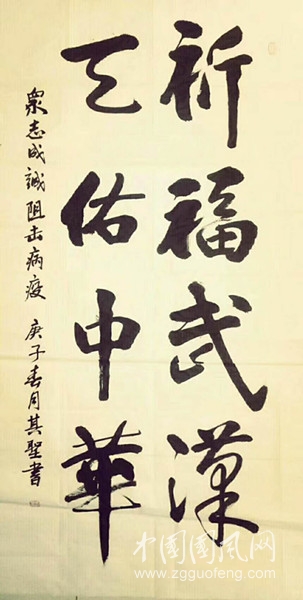 祈福武漢
天佑中華
衆志成誠阻击病疫 庚子春月其聖書
中国国风网
www.zgguofeng.com